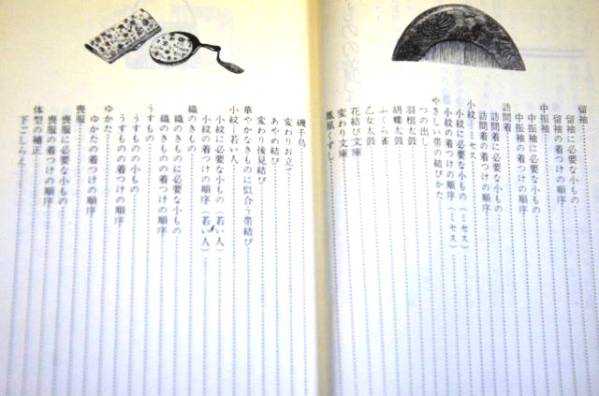 留袖
留袖に必要な小もの
留袖の着つけの順序
中振袖
中振袖に必要な小もの
中振袖の着つけの順序
訪問着
訪問着に必要な小もの
訪問着の着つけの順序
小紋―ミセス
小紋に必要な小もの（ミセス）
小紋の着つけの順序（ミセス）
やさしい帯の結びかた
つの出し
羽根太鼓
胡蝶太鼓
ふくら雀
乙女太鼓
花結び文庫
変わり文庫
鳳凰くずし
磯千鳥
変わりお立て
あやめ結び
変わり後見結び
華やかなきものに似合う帯結び
小紋―若い人
小紋に必要な小もの（若い人）
小紋の着つけの順序（若い人）
織のきもの
織のきものに必要な小もの
織のきものの着つけの順序
うすもの
うすものの小もの
うすものの着つけの順序
ゆかた
ゆかたの着つけの順序
喪服
喪服に必要な小もの
喪服の着つけの順序
体型の補正
下ごしらえ